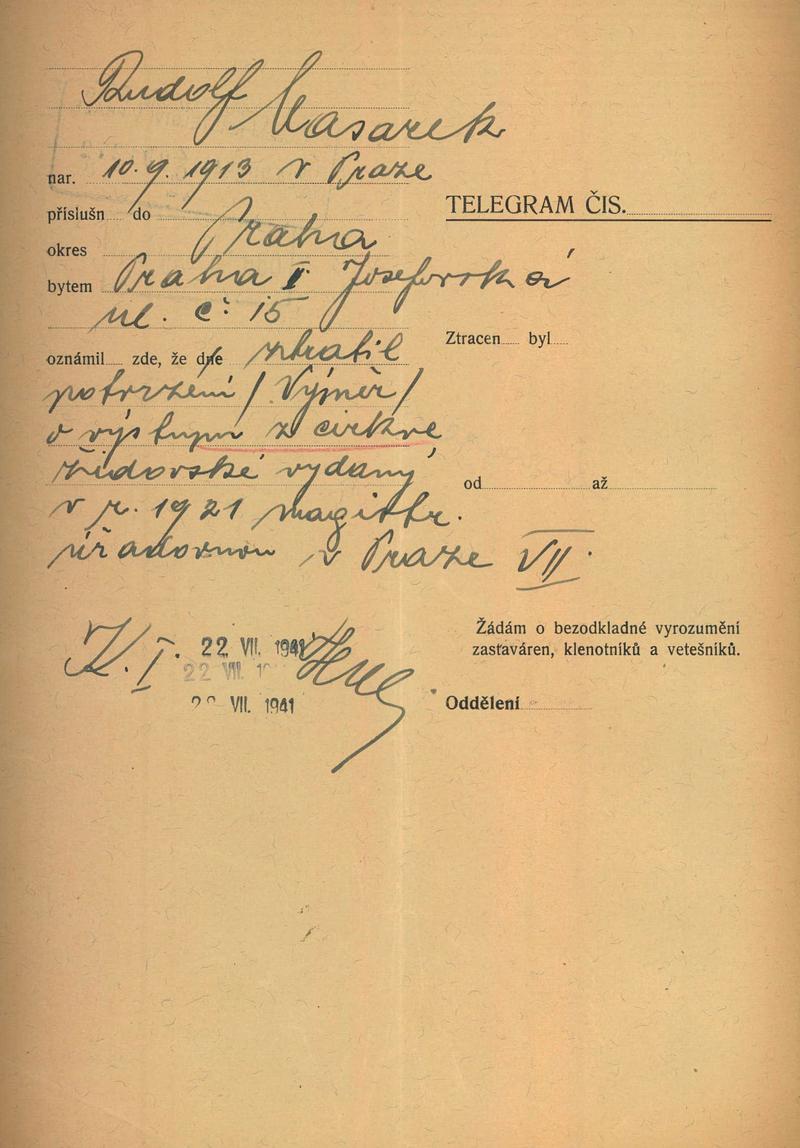 Rudolf
Masarek
nar. 10.9.1913 v Praze
příslušn do
TELEGRAM ČIS.
okres Praha
bytem Praha I Josefovská
ul. č. 15
Ztracen byl
oznámil zde, že dne ztratil
potvrzení / Výměr /
o výstupu z církve
židovské vydaný
od až
v r. 1921 magistr.
úřadovnou v Praze VII.
Žádám o bezodkladné vyrozumění
K.I. 22 VII. 1941
zastaváren, klenotníků a vetešníků.
22 VII. 1
VII. 1941
Oddělení